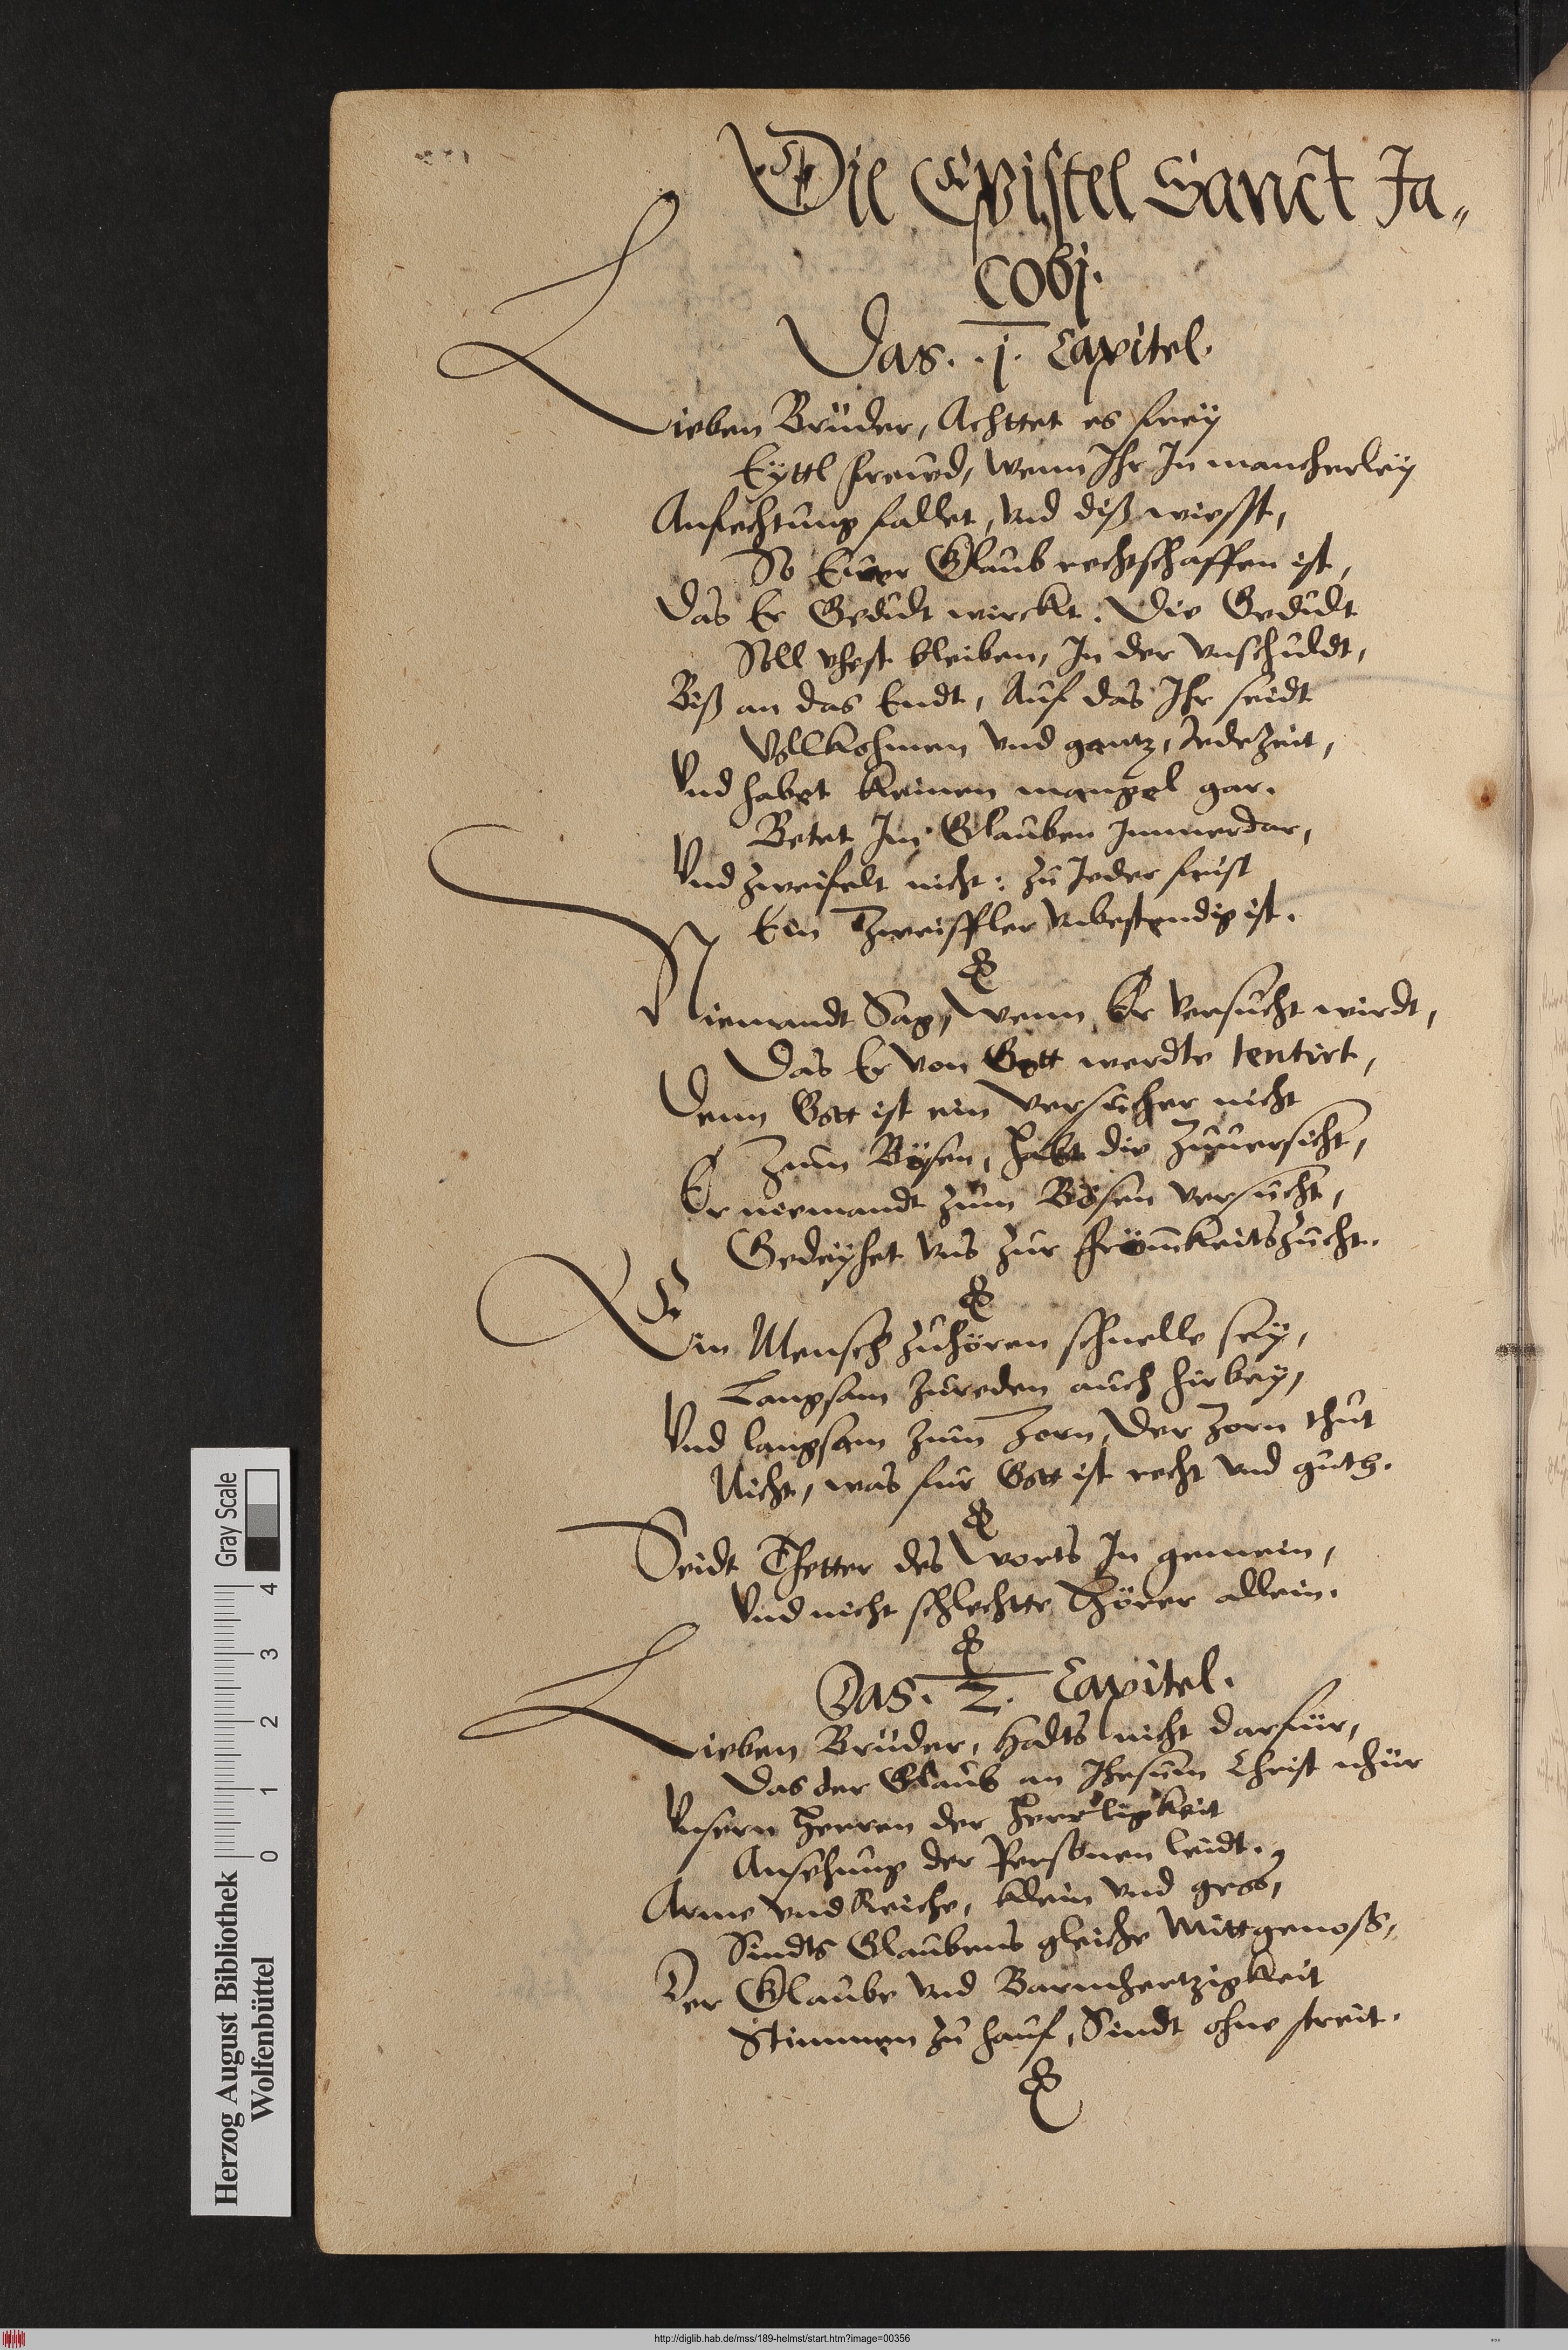 Die Epistel Sanct Ja„
cobj.
Das. 1. Capitel.
Lieben Brüder, Achttet es frey
Eyttl freüwd, wenn Ihr In mancherley
Anfechtung fallet, vnd diß wiesst,
So Euer Glaub rechtschaffen ist,
Das Er Gedult wirckt. Die Gedult
Soll vhest bleiben, In der vnschuldt,
Biß an das Endt, Auf das Ihr seidt
Vollkohmen vnd gantz, Jedezeit,
Vnd habet keinen mangel gar.
Betet Im Glauben Immerdar,
Vnd zweifelt nicht: zu Jeder frist
Ein Zweiffler vnbestendig ist.
Niemandt Sag, wenn Er versucht wirdt,
Das Er von Gott werdte tentirt,
Denn Gott ist ein versucher nicht
Zum Bösen, habt die Zuuersicht,
Er niemandt zum Bösen versucht,
Gedeyhet vns zur frömkeitszucht.
Ein Mensch zuhören schnelle sey,
Langsam zureden auch hirbey,
Vnd langsam zum Zorn, Der Zorn thut
Nicht, was für Gott ist recht vnd guth.
Seidt Thetter des Worts In gemein,
Vnd nicht schlechtte Hörer allein.
Das. 2. Capitel.
Lieben Brüder, Hadts nicht darfür,
Das der Glaub an Jhesum Christ nhür
Vnsern Herren der Herrligkeit
Ansehung der Personen leidt.
Arme vnd Reiche, klein vnd gross,
Sindts Glaubens gleiche Mittgenoß,
Der Glaube vnd Barmhertzigkeit
Stimmen zu hauf, Sindt ohne streit.
Herzog August Bibliothek
Wolfenbüttel
0 1 2 3 4
Gray Scale
http://diglib.hab.de/mss/189-helmst/start.htm?image=00356